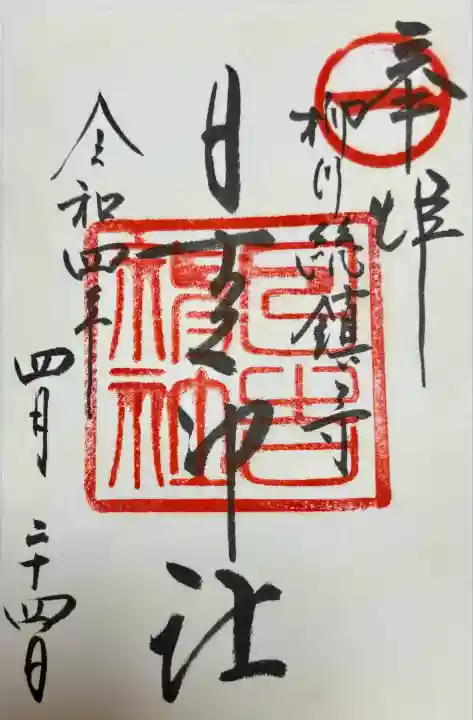 奉拝
柳川總鎮守
日吉神社
日吉
神社
令和四年
四月二十四日